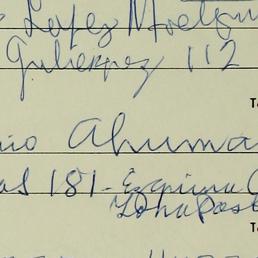 Lopez
Gutierrez 112
T
nio Ahuma
as 181 - Esquina C
Zona Post
T